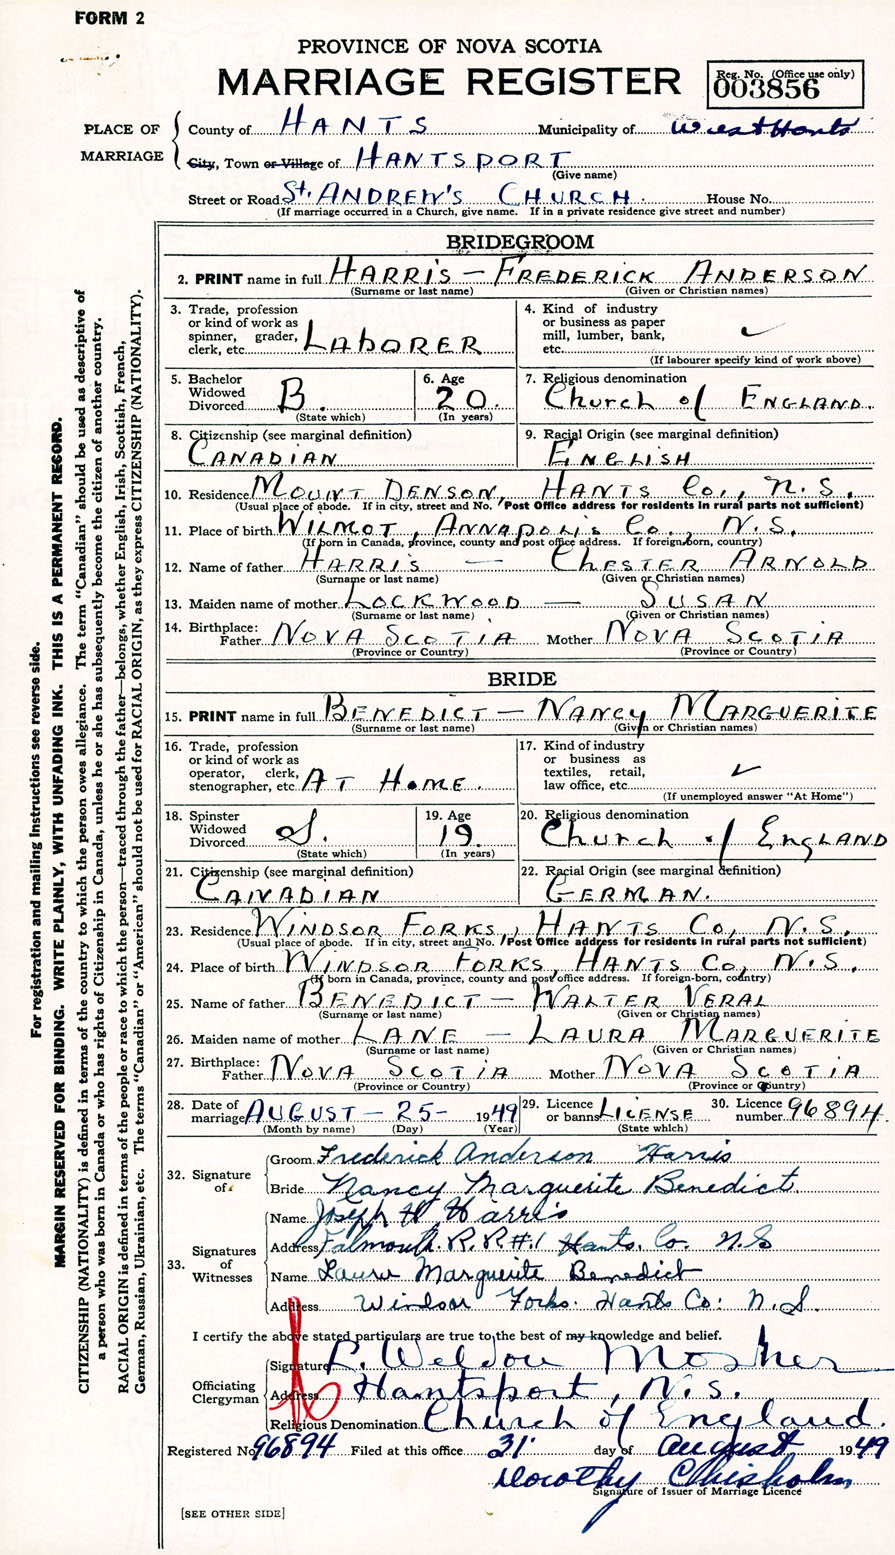 FORM 2
PROVINCE OF NOVA SCOTIA
MARRIAGE REGISTER
Reg. No. (Office use only)
003856
PLACE OF MARRIAGE
County of HANTS Municipality of West Hants
City, Town or Village of HANTSPORT
(Give name)
Street or Road St. ANDREW'S CHURCH. House No.
(If marriage occurred in a Church, give name. If in a private residence give street and number)
BRIDEGROOM
2. PRINT name in full HARRIS – FREDERICK ANDERSON
(Surname or last name) (Given or Christian names)
3. Trade, profession or kind of work as spinner, grader, clerk, etc. LABORER
4. Kind of industry or business as paper mill, lumber, bank, etc. ✓
(If labourer specify kind of work above)
5. Bachelor Widowed Divorced B.
(State which)
6. Age 20.
(In years)
7. Religious denomination
Church of ENGLAND.
8. Citizenship (see marginal definition)
CANADIAN
9. Racial Origin (see marginal definition)
ENGLISH
10. Residence MOUNT DENSON, HANTS Co., N.S.
(Usual place of abode. If in city, street and No. Post Office address for residents in rural parts not sufficient)
11. Place of birth WILMOT, ANNAPOLIS Co., N.S.
(If born in Canada, province, county and post office address. If foreign-born, country)
12. Name of father HARRIS – CHESTER ARNOLD
(Surname or last name) (Given or Christian names)
13. Maiden name of mother LOCKWOOD – SUSAN
(Surname or last name) (Given or Christian names)
14. Birthplace: Father NOVA SCOTIA Mother NOVA SCOTIA
(Province or Country) (Province or Country)
BRIDE
15. PRINT name in full BENEDICT – NANCY MARGUERITE
(Surname or last name) (Given or Christian names)
16. Trade, profession or kind of work as operator, clerk, stenographer, etc. AT HOME.
17. Kind of industry or business as textiles, retail, law office, etc. ✓
(If unemployed answer "At Home")
18. Spinster Widowed Divorced S.
(State which)
19. Age 19.
(In years)
20. Religious denomination
Church of ENGLAND
21. Citizenship (see marginal definition)
CANADIAN
22. Racial Origin (see marginal definition)
GERMAN.
23. Residence WINDSOR FORKS, HANTS Co, N.S.
(Usual place of abode. If in city, street and No. Post Office address for residents in rural parts not sufficient)
24. Place of birth WINDSOR FORKS, HANTS Co, N.S.
(If born in Canada, province, county and post office address. If foreign-born, country)
25. Name of father BENEDICT – WALTER VERAL
(Surname or last name) (Given or Christian names)
26. Maiden name of mother LANE – LAURA MARGUERITE
(Surname or last name) (Given or Christian names)
27. Birthplace: Father NOVA SCOTIA Mother NOVA SCOTIA
(Province or Country) (Province or Country)
28. Date of marriage AUGUST – 25 – 1949
(Month by name) (Day) (Year)
29. Licence or banns LICENSE
(State which)
30. Licence number 96894.
32. Signature of
Groom Frederick Anderson Harris
Bride Nancy Marguerite Benedict
33. Signatures of Witnesses
Name Joseph H Harris
Address Falmouth. R.R#1 Hants. Co. N.S
Name Laura Marguerite Benedict
Address Windsor Forks. Hants Co: N.S.
I certify the above stated particulars are true to the best of my knowledge and belief.
Officiating Clergyman
Signature L. Weldon Mosher
Address Hantsport, N.S.
Religious Denomination Church of England.
Registered No. 96894 Filed at this office 31. day of August 1949
Dorothy Chisholm
Signature of Issuer of Marriage Licence
[SEE OTHER SIDE]
For registration and mailing instructions see reverse side.
MARGIN RESERVED FOR BINDING. WRITE PLAINLY, WITH UNFADING INK. THIS IS A PERMANENT RECORD.
CITIZENSHIP (NATIONALITY) is defined in terms of the country to which the person owes allegiance. The term "Canadian" should be used as descriptive of
a person who was born in Canada or who has rights of Citizenship in Canada, unless he or she has subsequently become the citizen of another country.
RACIAL ORIGIN is defined in terms of the people or race to which the person—traced through the father—belongs, whether English, Irish, Scottish, French,
German, Russian, Ukrainian, etc. The terms "Canadian" or "American" should not be used for RACIAL ORIGIN, as they express CITIZENSHIP (NATIONALITY).